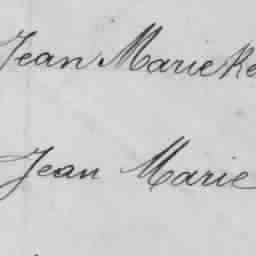 Jean Marie Re
Jean Marie